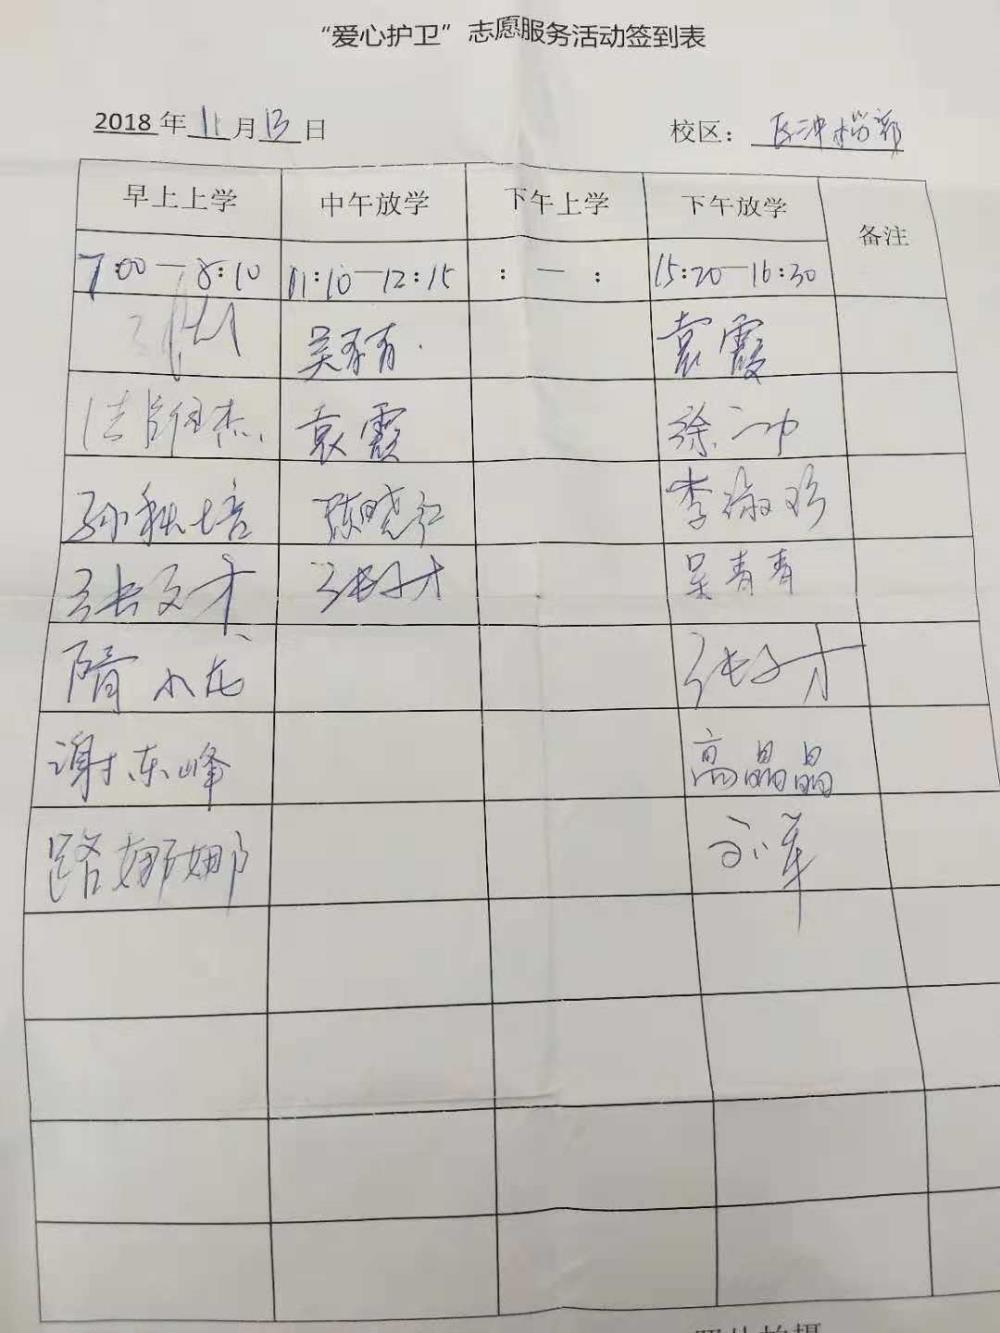 “爱心护卫”志愿服务活动签到表
2018 年 11 月 13 日 校区：
早上上学 中午放学 下午上学 下午放学 备注
7:00—8:10 11:10—12:15 : — : 15:20—16:30
吴青青 袁霞
袁霞
孙秋培 陈晓红 李淑珍
张文才 吴青青
隋小龙
谢东峰 高晶晶
路娜娜